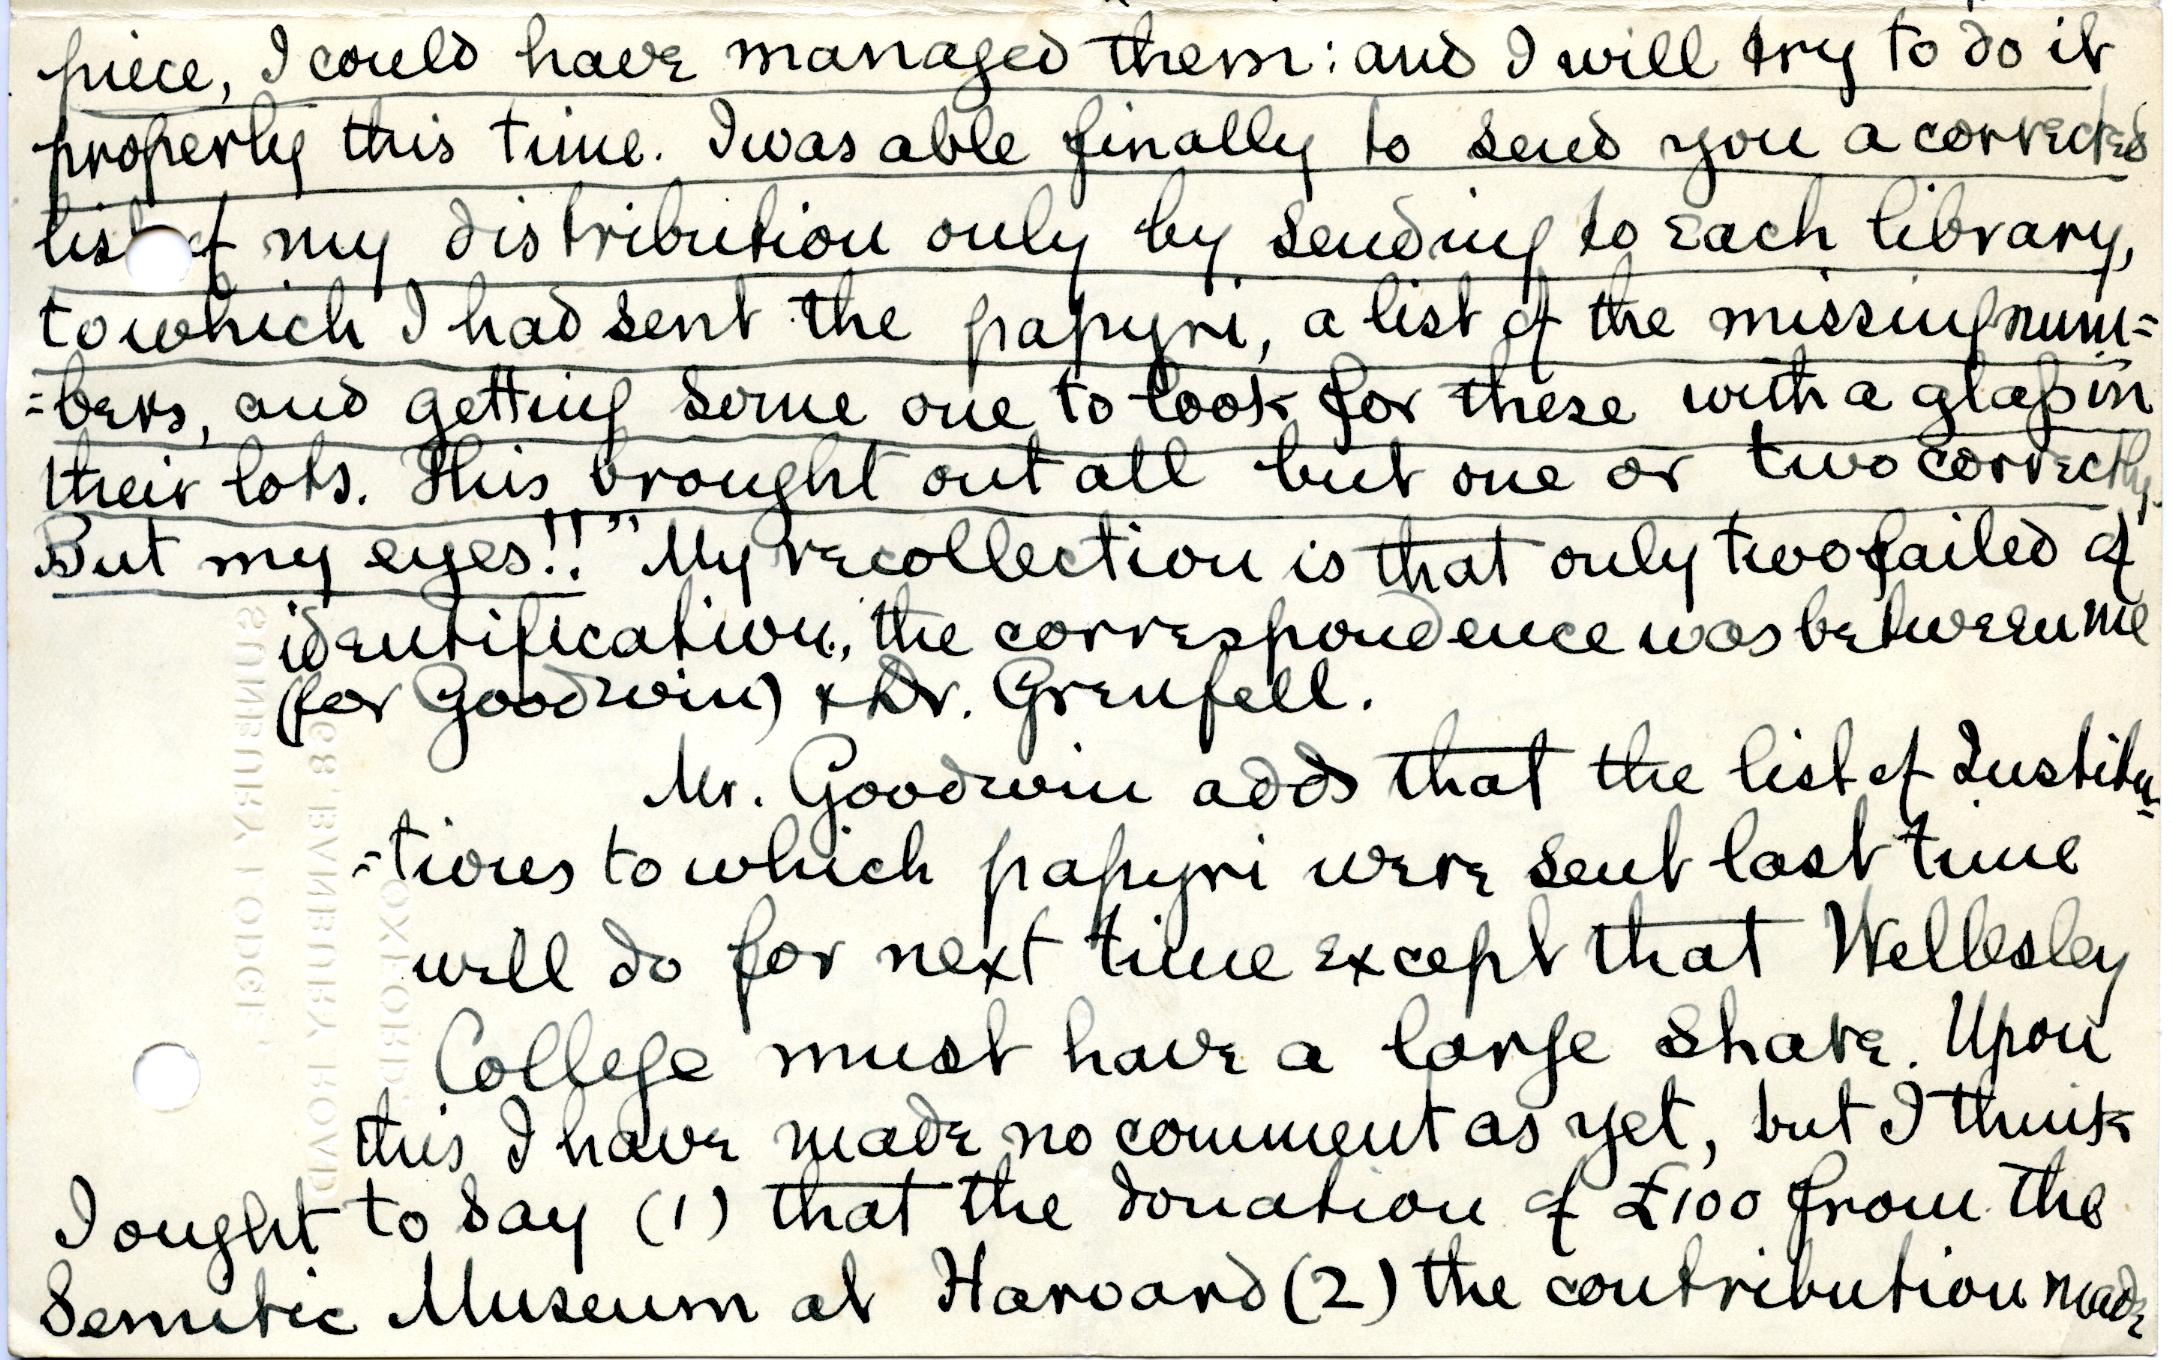 piece, I could have managed them: and I will try to do it
properly this time. I was able finally to send you a corrected
list of my distribution only by sending to each library,
to which I had sent the papyri, a list of the missing num=
=bers, and getting some one to look for these with a glass in
their lots. This brought out all but one or two correctly.
But my eyes!!" My recollection is that only two failed of
identification, the correspondence was between me
(for Goodwin) & Dr. Grenfell.
Mr. Goodwin adds that the list of Institu=
=tions to which papyri were sent last time
will do for next time except that Wellesley
College must have a large share. Upon
this I have made no comment as yet, but I think
I ought to say (1) that the donation of £100 from the
Semitic Museum at Harvard (2) the contribution made
SUNBURY LODGE
BANBURY ROAD
OXFORD